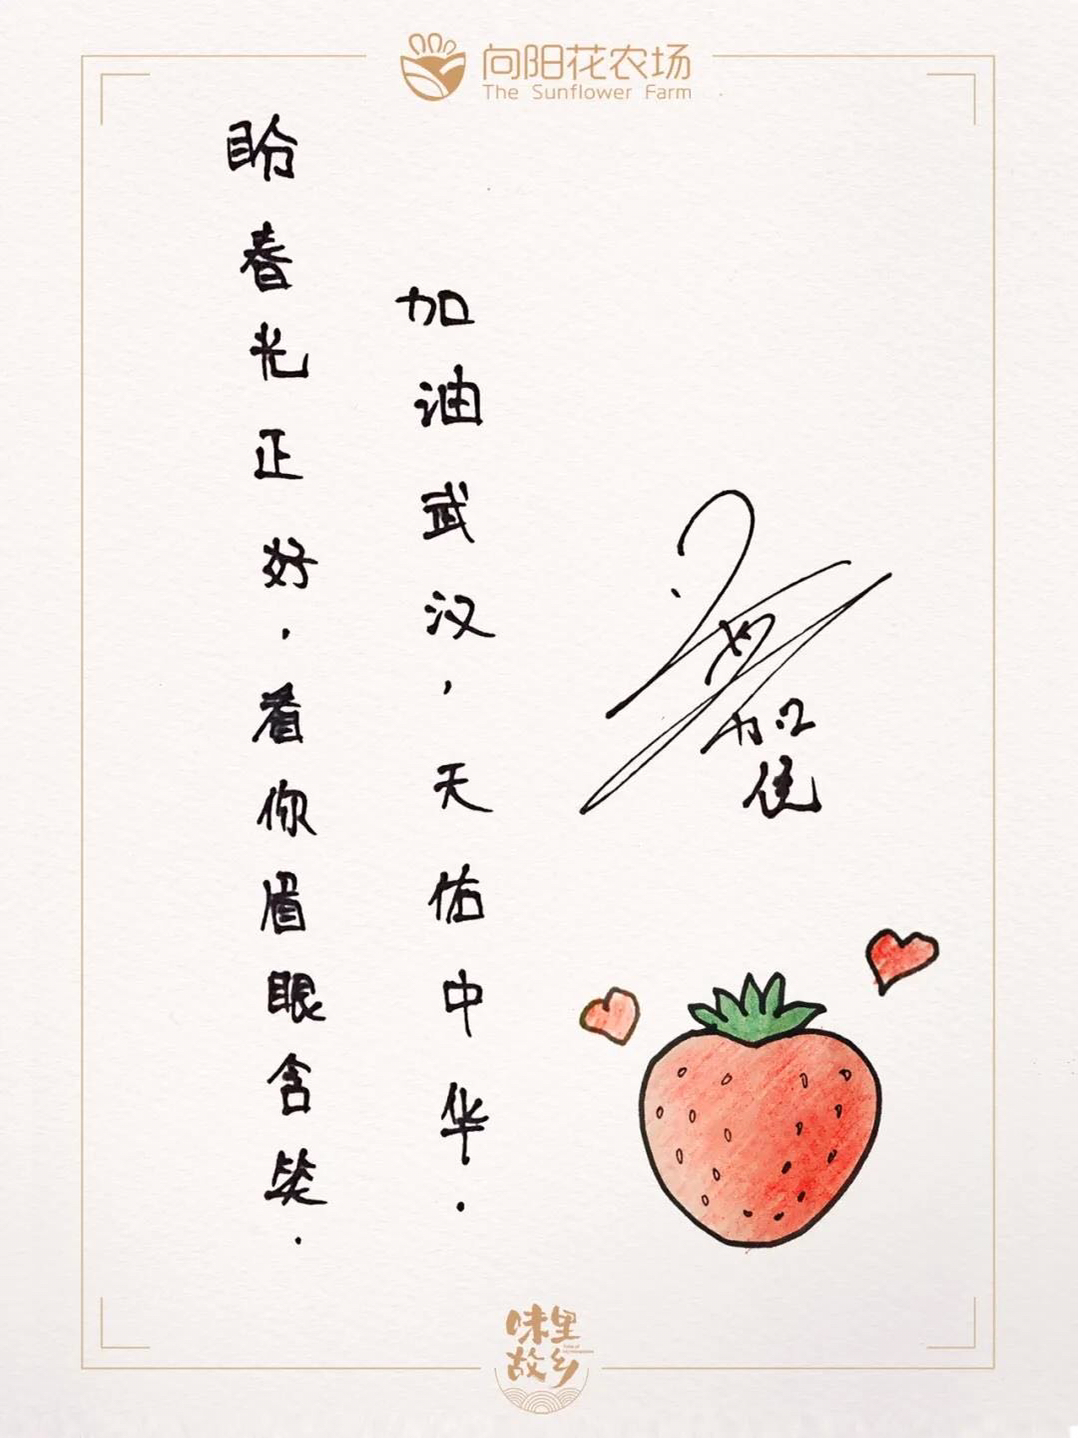 向阳花农场
The Sunflower Farm
盼春光正好.看你眉眼含笑.
加油武汉,天佑中华.
味里
故乡